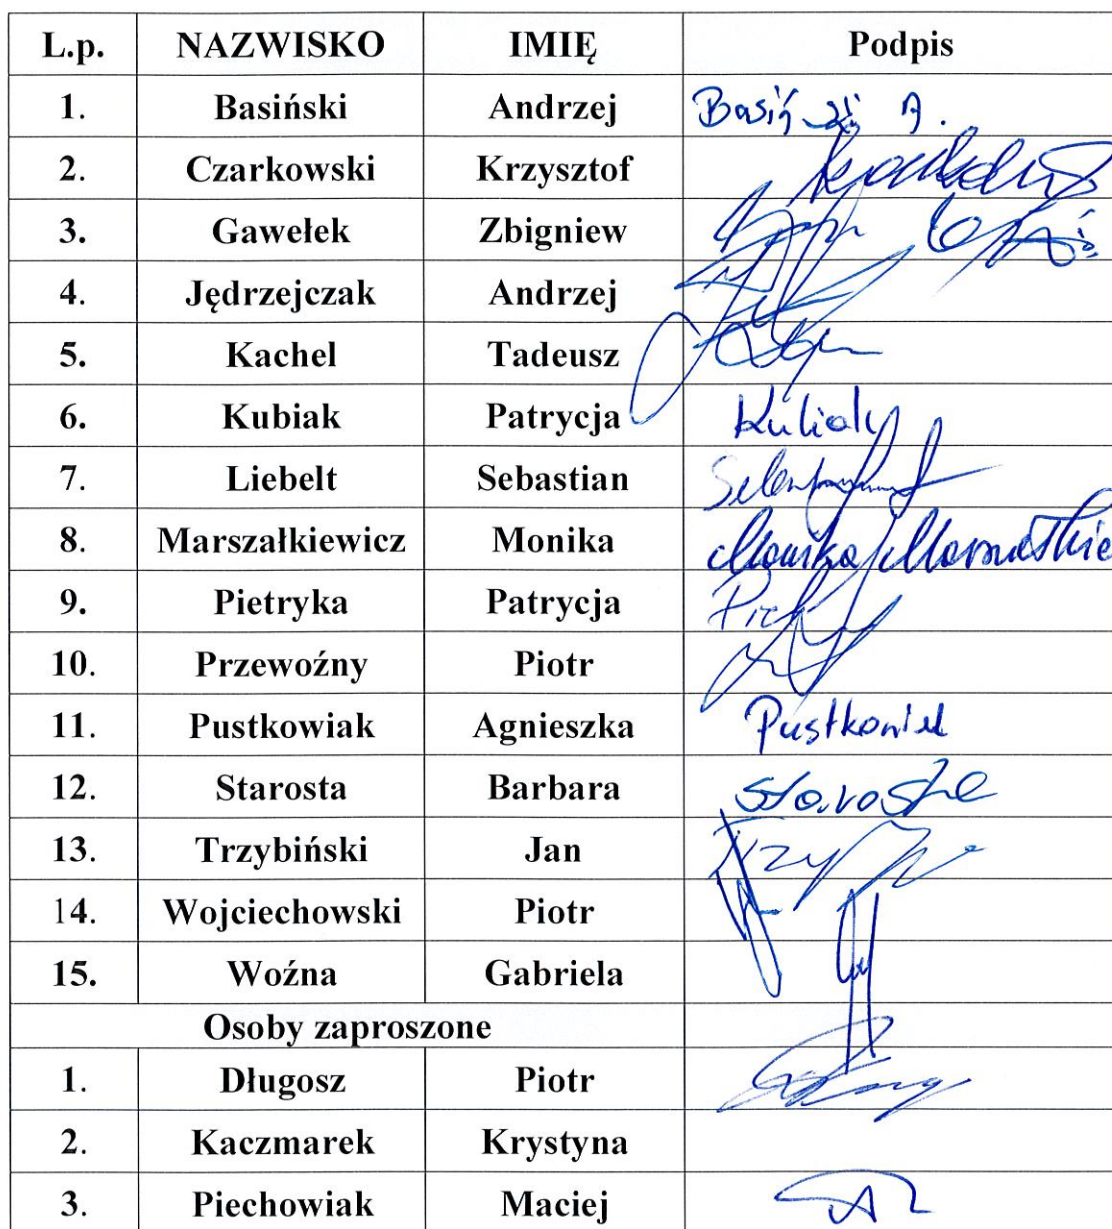 L.p. NAZWISKO IMIĘ Podpis
1. Basiński Andrzej Basiński A.
2. Czarkowski Krzysztof
3. Gawełek Zbigniew
4. Jędrzejczak Andrzej
5. Kachel Tadeusz
6. Kubiak Patrycja Kubiak
7. Liebelt Sebastian
8. Marszałkiewicz Monika Monika Marszałkie
9. Pietryka Patrycja
10. Przewoźny Piotr
11. Pustkowiak Agnieszka Pustkowiak
12. Starosta Barbara Starosta
13. Trzybiński Jan
14. Wojciechowski Piotr
15. Woźna Gabriela
Osoby zaproszone
1. Długosz Piotr
2. Kaczmarek Krystyna
3. Piechowiak Maciej